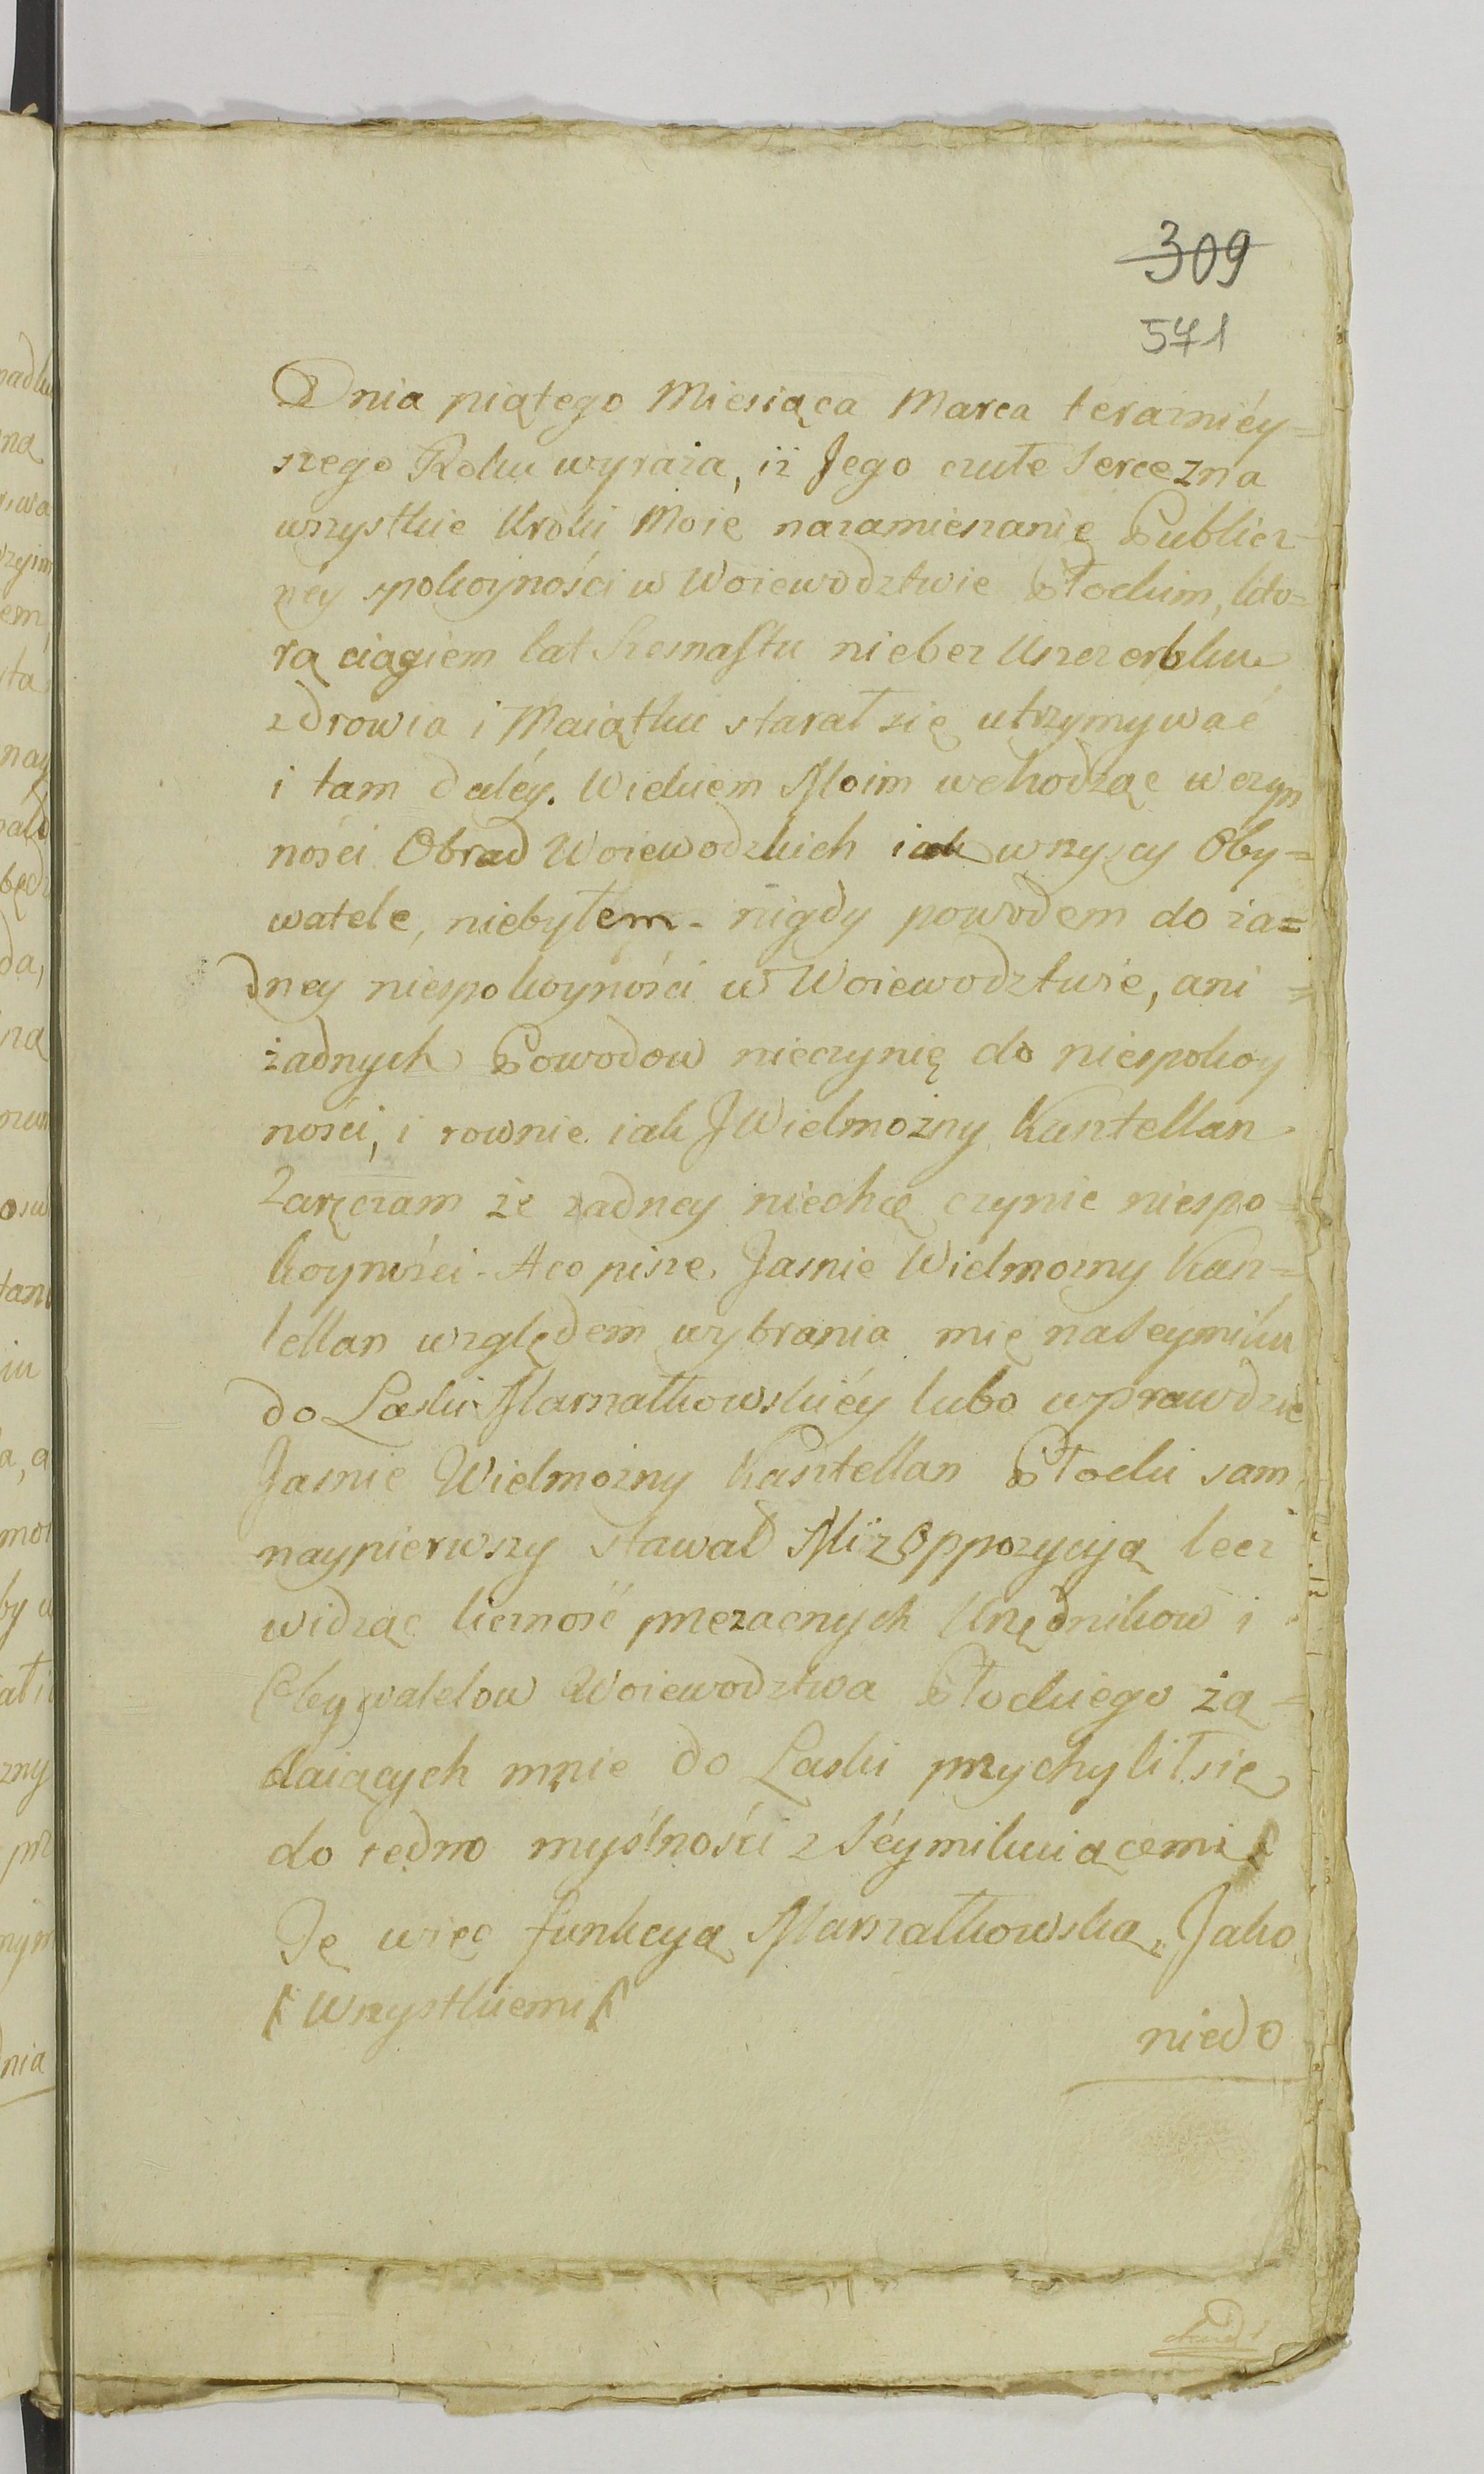 309
571
Dnia piątego Miesiąca Marca terazniéy=
szego Roku wyraża, iż Jego czułe Serce zna
wszystkie kroki Moie nazamieszanie Publicz-
ney spokoyności w Woiewodztwie Płockim, kto=
rą ciągiem lat szesnastu niebez Uszczerbku
zdrowia i Maiątku starał się utrzymywać
i tam daléy. Wiekiem Moim wchodząc w czyn
ności Obrad Woiewodzkich iak wszyscy Oby=
watele, niebyłem nigdy powodem do ża=
dney niespokoyności w Woiewodztwie, ani
żadnych Powodow nieczynię do niespokoy
ności, i rownie iak JWielmożny Kasztellan
Zaręczam że żadney niechcę czynic niespo=
koyności. A co pisze Jasnie Wielmożny Kasz=
tellan względem wybrania mię na Seymiku
do Laski Marszałkowskiéy lubo wprawdzie
Jasnie Wielmożny Kasztellan Płocki sam
naypierwszy stawał Mi z Oppozycyą lecz
widząc liczność przezacnych Urzędnikow i
Obywatelow Woiewodztwa Płockiego żą=
daiących mnie do Laski przychylił się
do iedno myślności z Séymikuiącemi
Tę więc funkcyą Marszałkowską, Jako
wszystkiemi
niedo